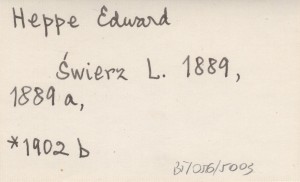 Heppe Edward
Świerz L. 1889,
1889 a,
*1902 b